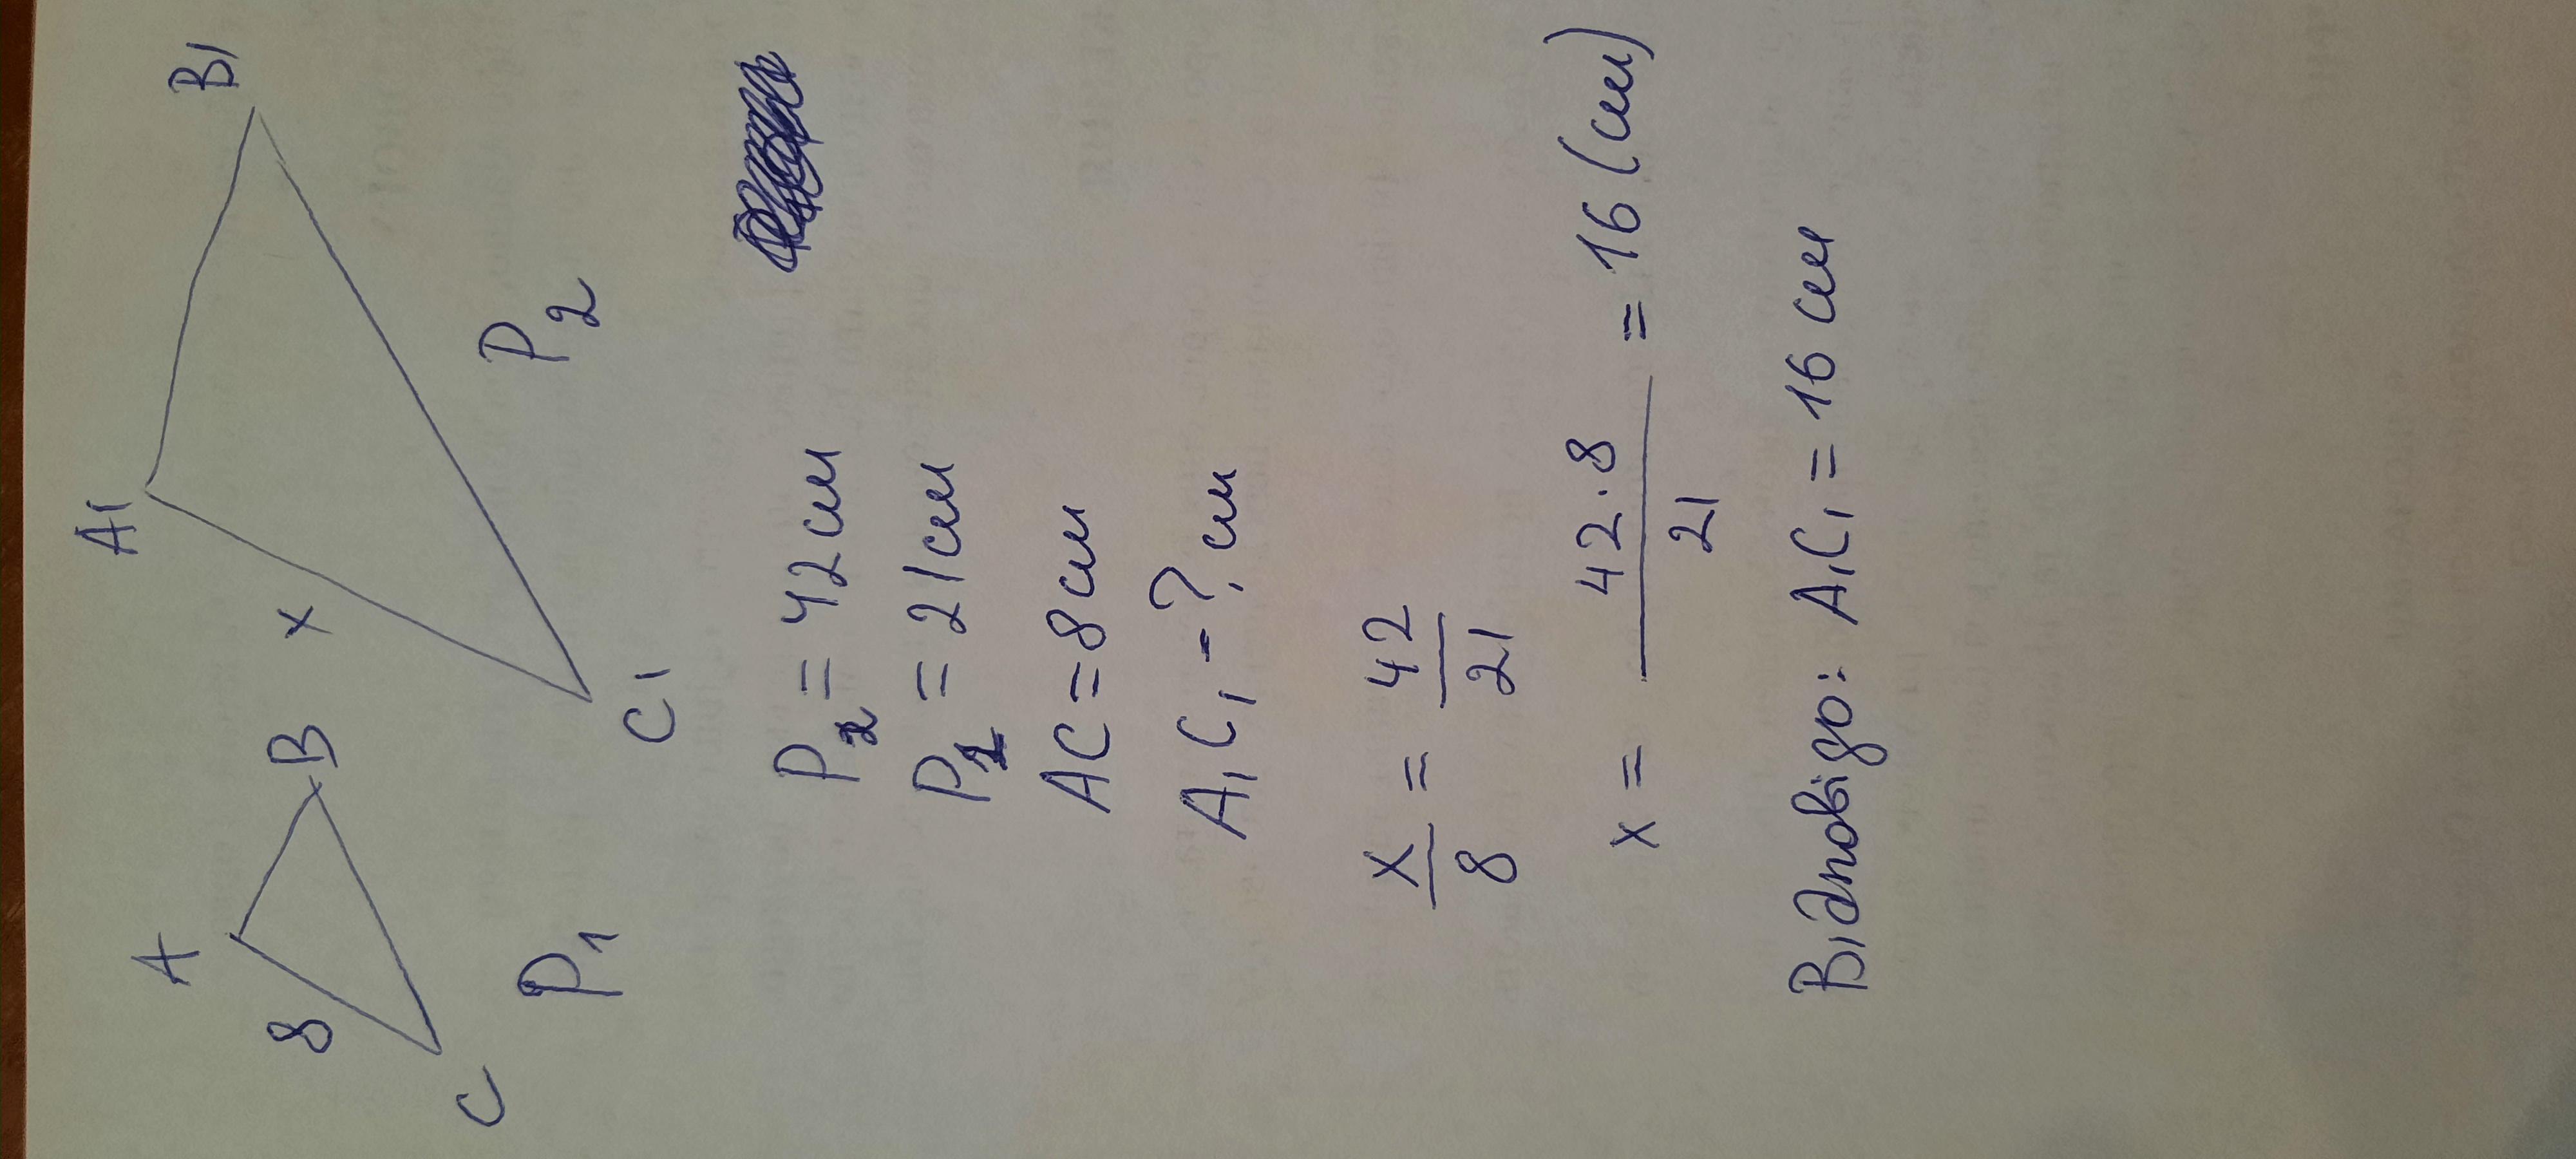 A B A1 B1
8 x
C C1
P1 P2
P2 = 42 см
P1 = 21 см
AC = 8 см
A1C1 - ? см
x/8 = 42/21
x = 42·8/21 = 16 (см)
Відповідь: A1C1 = 16 см